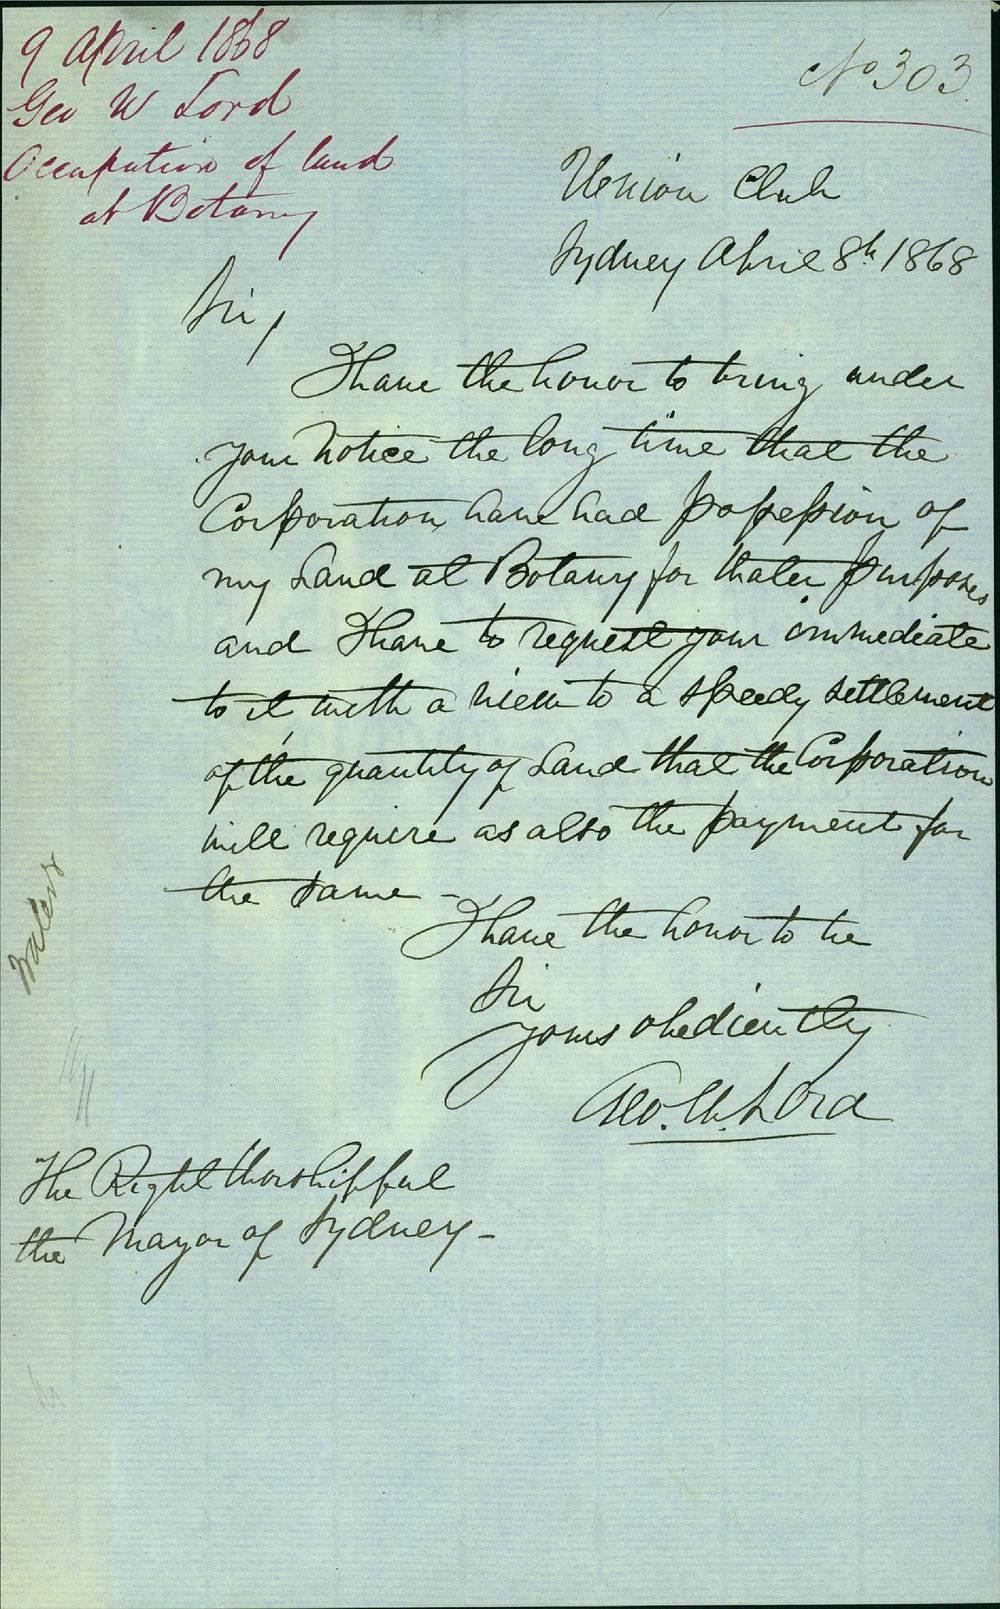 9 April 1868
Geo W Lord
Occupation of land
at Botany
No 303
Union Club
Sydney April 8th 1868
Sir,
I have the honor to bring under
your notice the long time that the
Corporation have had possession of
my Land at Botany for Water purposes
and I have to request your immediate
to it with a view to a speedy settlement
of the quantity of Land that the Corporation
will require as also the payment for
the same -
I have the honor to be
Sir
Yours obediently
Geo. W. Lord
Water
The Right Worshipful
the Mayor of Sydney -